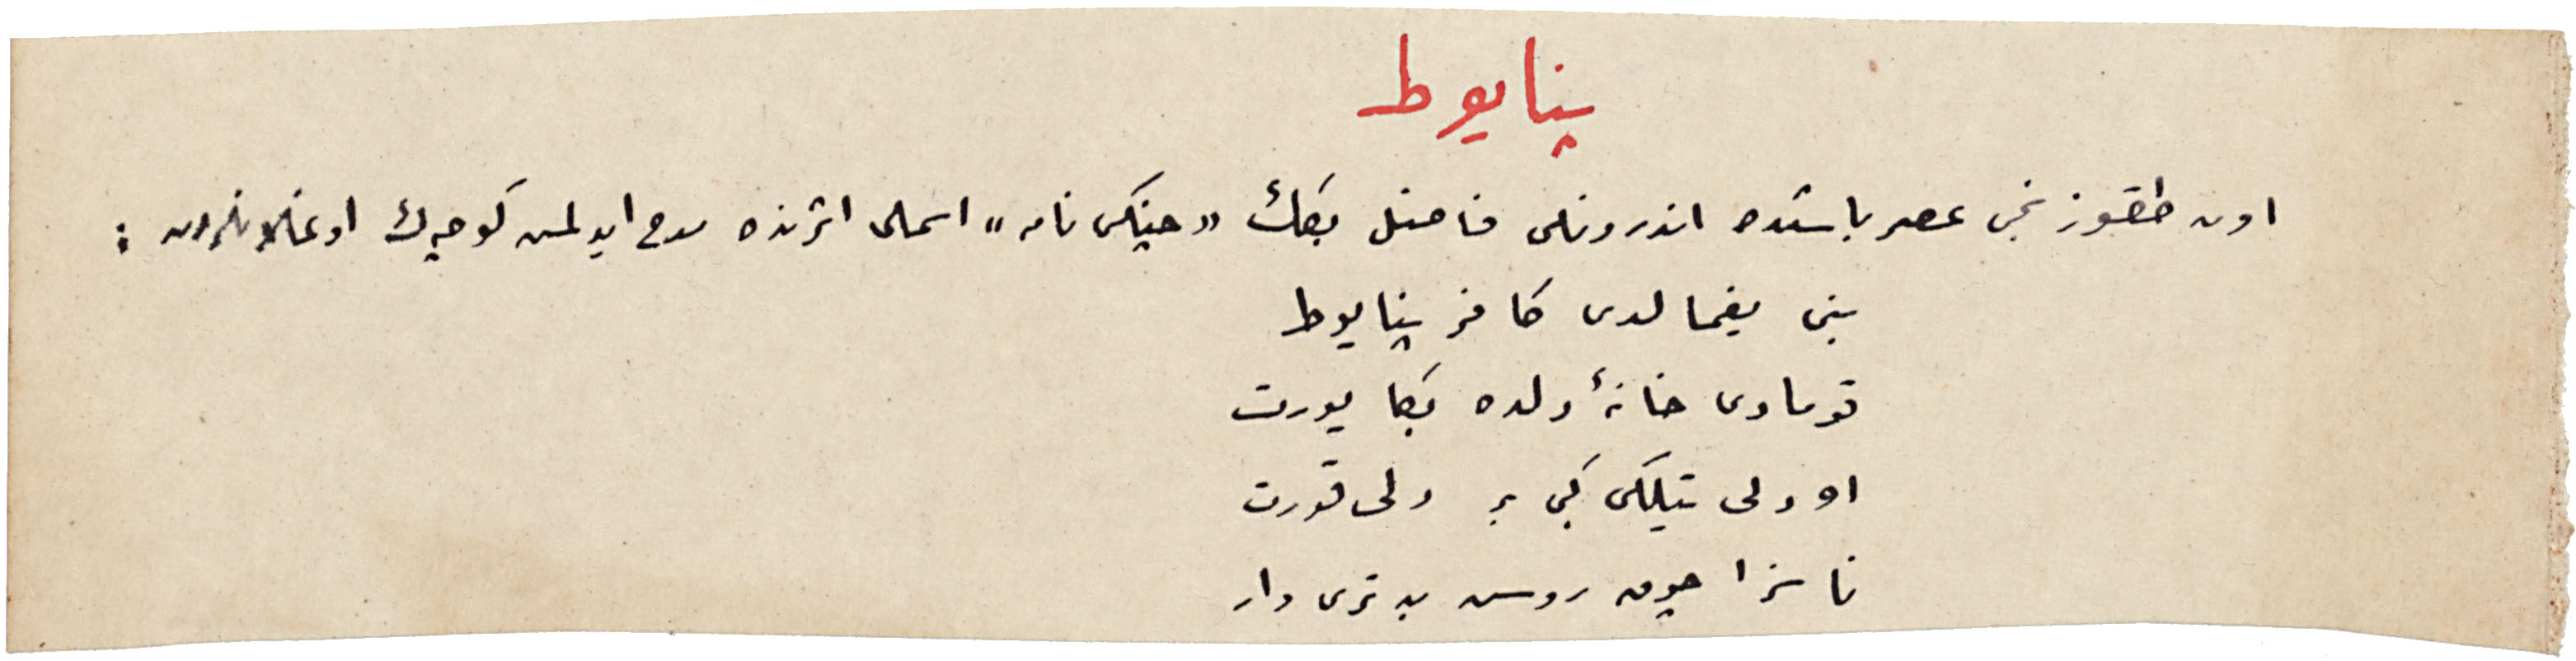 پنايوط
اون طقوزنجی عصر باشنده اندرونلی فاضل بكك «چنكی نامه» اسملی اثرنده مدح ايديلمش كوچك اوغلانلردن :
بنی يغمالدی كافر پنايوط
قومادی خانهٔ دلده بكا يورت
او دلی تيلكی كبی بر دلی قورت
ناسزا چوق روسی بدتری وار